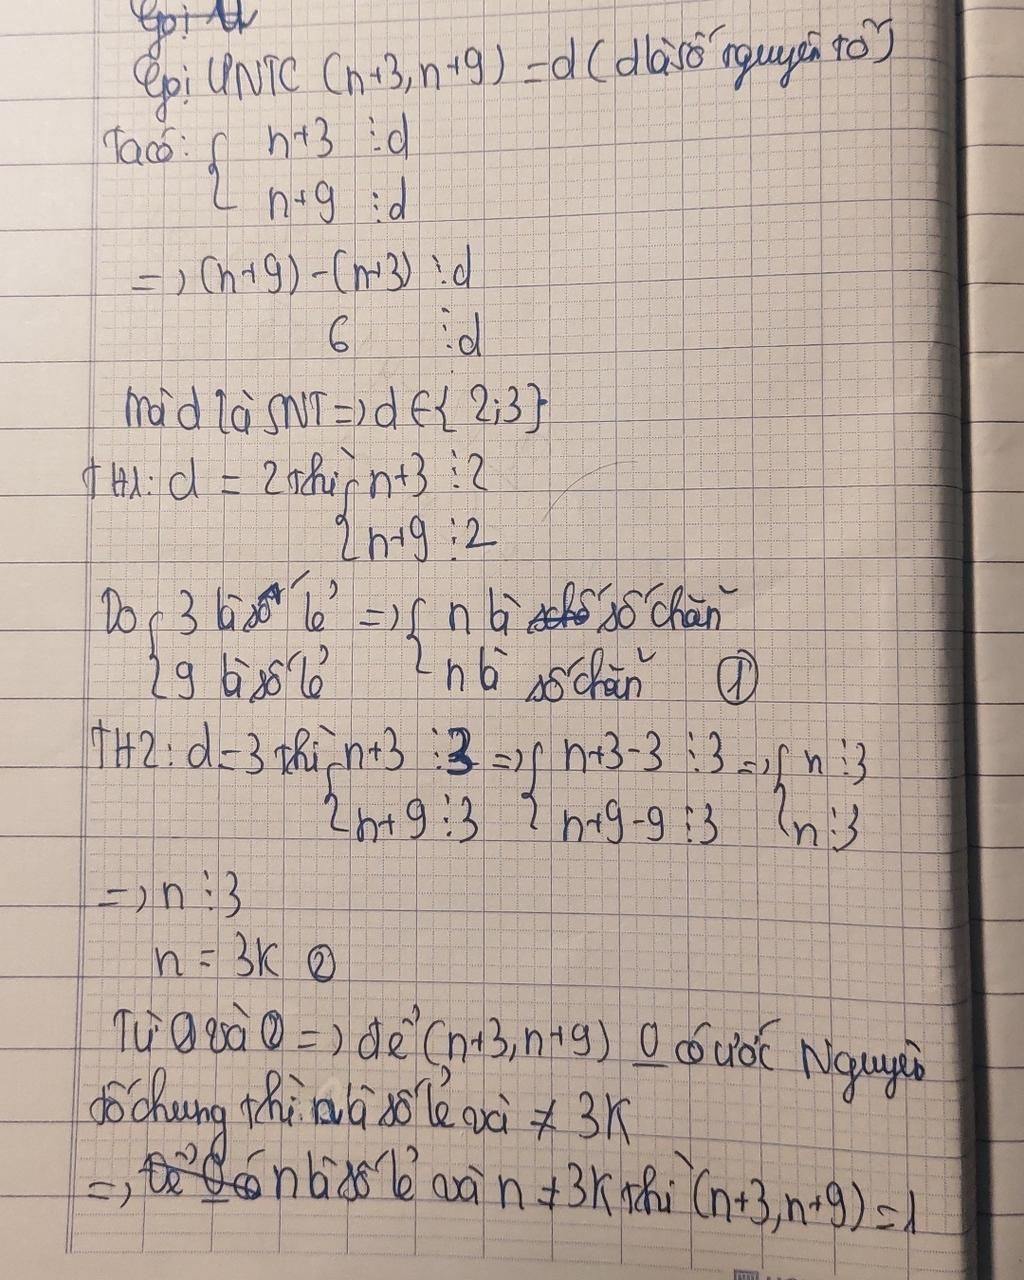 Gọi ƯNTC (n+3, n+9) = d (d là số nguyên tố)
Ta có: { n+3 ⋮ d
n+9 ⋮ d
=> (n+9) - (n+3) ⋮ d
6 ⋮ d
mà d là SNT => d ∈ { 2;3}
TH1: d = 2 thì { n+3 ⋮ 2
n+9 ⋮ 2
Do { 3 là số lẻ => { n là số chẵn
9 là số lẻ n là số chẵn ①
TH2: d = 3 thì { n+3 ⋮ 3 => { n+3-3 ⋮ 3 => { n ⋮ 3
n+9 ⋮ 3 n+9-9 ⋮ 3 n ⋮ 3
=> n ⋮ 3
n = 3K ②
Từ ① và ② => để (n+3, n+9) 0 có ước Nguyên
tố chung thì n là số lẻ và ≠ 3K
=> n là số lẻ và n ≠ 3K thì (n+3, n+9) = 1